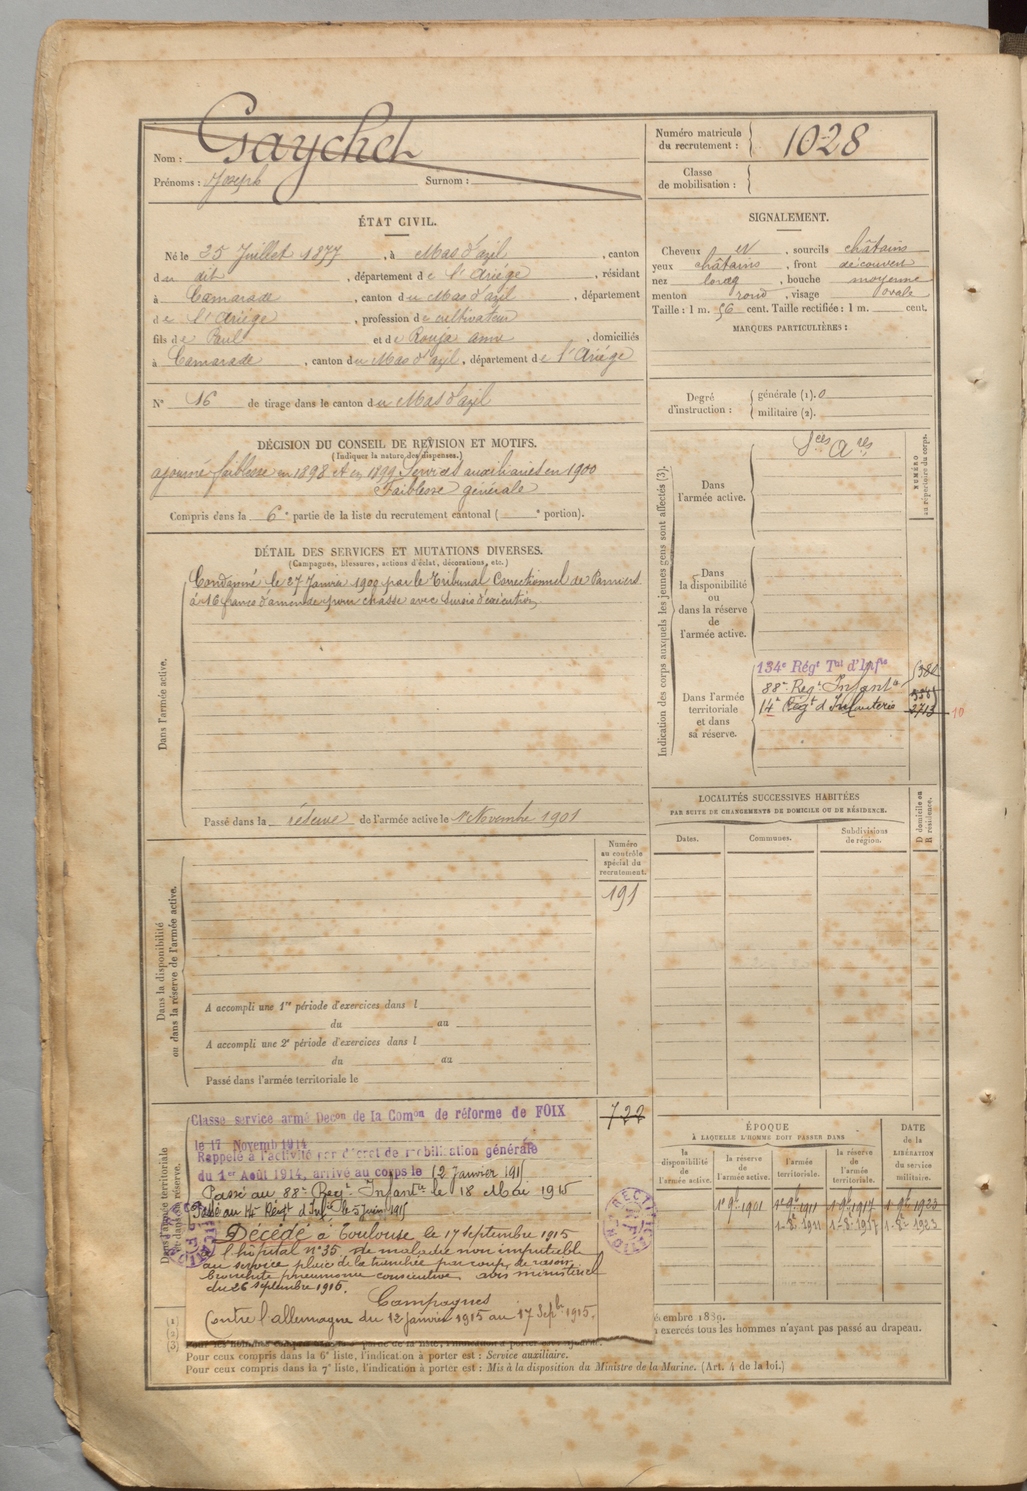 Nom : Gaychet
Prénoms : Joseph Surnom :
Numéro matricule du recrutement : 1028
Classe de mobilisation :
ÉTAT CIVIL.
Né le 25 Juillet 1877, à Mas d'azil, canton
du dit, département de l'Ariège, résidant
à Camarade, canton du Mas d'azil, département
de l'Ariège, profession de cultivateur
fils de Paul et de Rouja anne, domiciliés
à Camarade, canton du Mas d'azil, département de l'Ariége
N° 16 de tirage dans le canton du Mas d'azil
SIGNALEMENT.
Cheveux et, sourcils châtains
yeux châtains, front découvert
nez long, bouche moyenne
menton rond, visage ovale
Taille : 1 m. 56 cent. Taille rectifiée : 1 m. cent.
MARQUES PARTICULIÈRES :
Degré d'instruction : générale (1). 0
militaire (2).
DÉCISION DU CONSEIL DE REVISION ET MOTIFS.
(Indiquer la nature des dispenses.)
ajourné faiblesse en 1898 et en 1899 Services auxiliaires en 1900
Faiblesse générale
Compris dans la 6e partie de la liste du recrutement cantonal ( e portion).
DÉTAIL DES SERVICES ET MUTATIONS DIVERSES.
(Campagnes, blessures, actions d'éclat, décorations, etc.)
Dans l'armée active.
Condamné le 27 Janvier 1900 par le Tribunal Correctionnel de Pamiers
à 16 francs d'amende pour chasse avec sursis d'exécution
Passé dans la réserve de l'armée active le 1er Novembre 1901
Indication des corps auxquels les jeunes gens sont affectés (3).
NUMÉRO au répertoire du corps.
Dans l'armée active.
Sces Ares
Dans la disponibilité ou dans la réserve de l'armée active.
Dans l'armée territoriale et dans sa réserve.
134e Régt Tal d'Infie
88e Regt Infante
14e Régt d'Infanterie 2713 10
LOCALITÉS SUCCESSIVES HABITÉES
PAR SUITE DE CHANGEMENTS DE DOMICILE OU DE RÉSIDENCE.
Dates. Communes. Subdivisions de région. D domicile ou R résidence.
Numéro au contrôle spécial du recrutement.
191
Dans la disponibilité ou dans la réserve de l'armée active.
A accompli une 1re période d'exercices dans l
du au
A accompli une 2e période d'exercices dans l
du au
Passé dans l'armée territoriale le
722
Dans l'armée territoriale
Classé service armé Decon de la Comon de réforme de FOIX
le 17 Novemb 1914
Rappelé à l'activité par décret de mobilisation générale
du 1er Août 1914, arrivé au corps le 12 Janvier 1915
Passé au 88e Regt Infanterie le 18 Mai 1915
Passé au 14e Régt d'Infie le 5 juin 1915
Décédé à Toulouse le 17 septembre 1915
l'hôpital n° 35 de maladie non imputable
au service plaie de la trachée par coup de rasoir,
broncho pneumonie consécutive avis ministériel
du 26 septembre 1915.
Campagnes
Contre l'allemagne du 12 janvier 1915 au 17 Septbre 1915.
RECTIFICATION
ÉPOQUE
À LAQUELLE L'HOMME DOIT PASSER DANS
la disponibilité de l'armée active.
la réserve de l'armée active.
l'armée territoriale.
la réserve de l'armée territoriale.
DATE de la LIBÉRATION du service militaire.
1er 9bre 1901 1er 9bre 1911 1er 9bre 1917 1er 9bre 1923
écembre 1889.
exercés tous les hommes n'ayant pas passé au drapeau.
Pour ceux compris dans la 6e liste, l'indication à porter est : Service auxiliaire.
Pour ceux compris dans la 7e liste, l'indication à porter est : Mis à la disposition du Ministre de la Marine. (Art. 4 de la loi.)